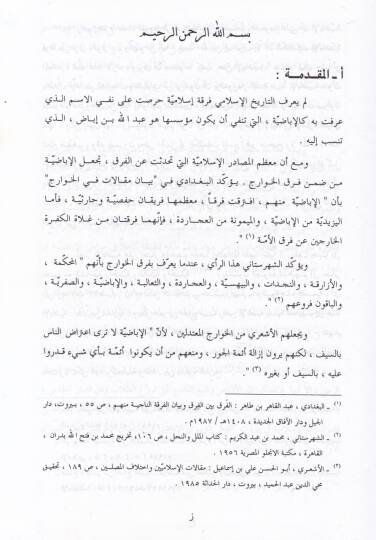 بسم الله الرحمن الرحيم
أ ـ المقدمة :
لم يعرف التاريخ الإسلامي فرقة إسلاميّة حرصت على نفي الاسم الذي
عرفت به كالإباضيّة ، التي تنفي أن يكون مؤسسها هو عبد الله بن إباض ، الذي
تنتسب إليه .
ومع أن معظم المصادر الإسلاميّة التي تحدثت عن الفرق ، تجعل الإباضيّة
من ضمن فرق الخوارج ـ يؤكد البغدادي في "بيان مقالات في الخوارج"
بأن " الإباضية منهم ، افترقت فرقاً ، معظمها فريقان حفصيّة وحارثيّة ، فأما
اليزيديّة من الإباضيّة ، والميمونة من العجاردة ، فإنّهما فرقتان من غلاة الكفرة
الخارجين عن فرق الأمّة " (١) .
ويؤكد الشهرستاني هذا الرأي ، عندما يعرّف بفرق الخوارج بأنّهم "المحكّمة ،
والأزارقة ، والنجدات ، والبيهسيّة ، والعجاردة ، والثعالبة ، والإباضيّة ، والصفريّة ،
والباقون فروعهم " (٢) .
ويجعلهم الأشعري من الخوارج المعتدلين ، لأنّ " الإباضيّة لا ترى اعتراض الناس
بالسيف ، لكنّهم يرون إزالة أئمة الجور ، ومنعهم من أن يكونوا أئمّة بأي شيء قدروا
عليه ، بالسيف أو بغيره " (٣) .
(١) ـ البغدادي ، عبد القاهر بن طاهر : الفرق بين الفرق وبيان الفرقة الناجية منهم ، ص ٥٥ ، بيروت، دار
الجيل ودار الآفاق الجديدة ، ١٤٠٨هـ / ١٩٨٧م .
(٢) ـ الشهرستاني ، محمد بن عبد الكريم : كتاب الملل والنحل ، ص ١٠٦، تخريج محمد بن فتح الله بدران ،
القاهرة ، مكتبة الانجلو المصرية ١٩٥٦ .
(٣) ـ الأشعري ، أبو الحسن علي بن إسماعيل : مقالات الإسلاميّين واختلاف المصلّين ، ص ١٨٩ ، تحقيق
محي الدين عبد الحميد ، بيروت ، دار الحداثة ١٩٨٥
ز